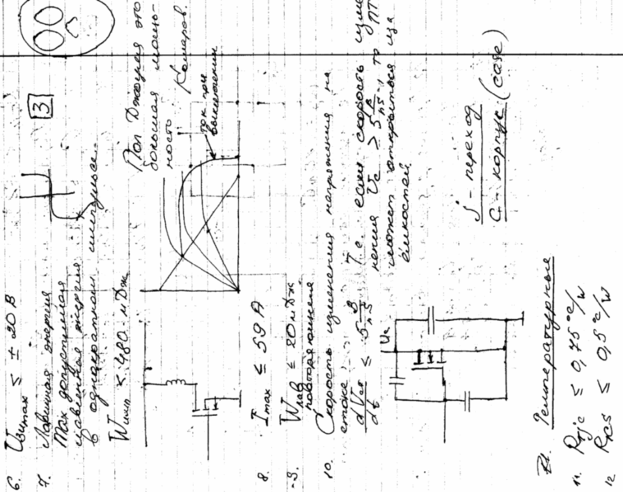 6. Uзи max ≤ ± 20 В
7. Лавинная энергия
Max допустимая
лавинная энергия
в однократном импульсе.
Wимп ≤ 480 мДж
3
Пол Джоуля это
большая мощ-
ность
Камаров.
ток при
выключении
8. Imax ≤ 59 A
9. Wлав ≤ 20 мДж
повторяющееся
10. Скорость изменения напряжения на
стоке:
dVси/dt ≤ 5 В/нс
Т.е. если скорость изме
нения Uс > 5 В/нс, то ПТ
может открыться че
ёмкостей
Uс
Температурные
j - переход
C - корпус (case)
11. Rθjc ≤ 0,75 °C/W
12 RθCS ≤ 0,5 °C/W